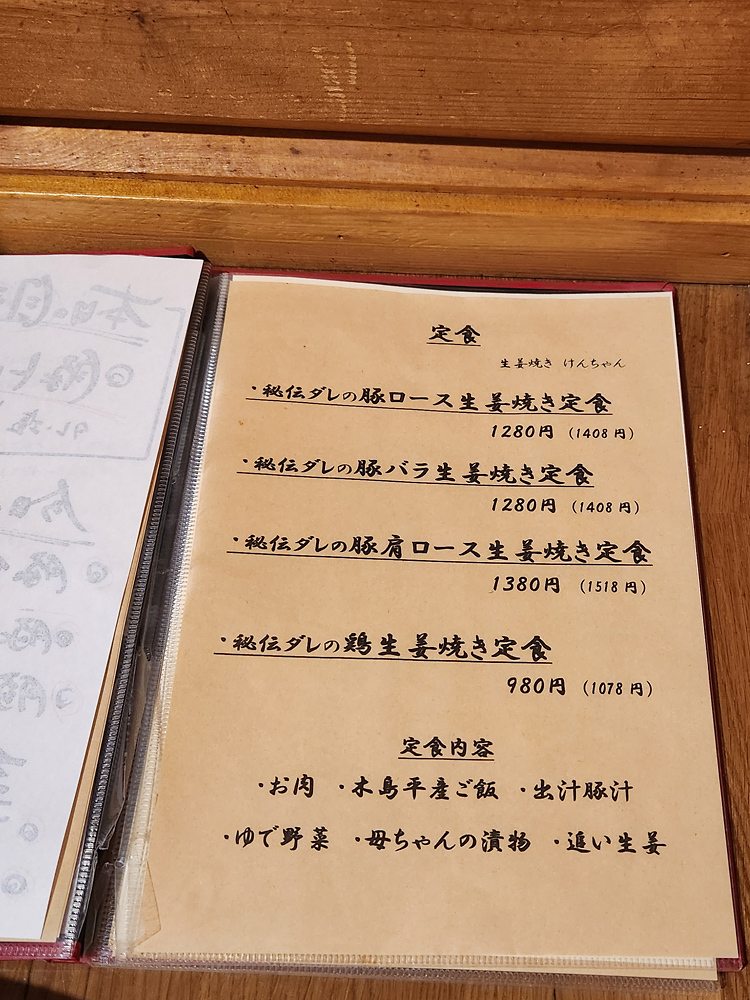 定食
生姜焼き けんちゃん
・秘伝ダレの豚ロース生姜焼き定食
1280円 (1408円)
・秘伝ダレの豚バラ生姜焼き定食
1280円 (1408円)
・秘伝ダレの豚肩ロース生姜焼き定食
1380円 (1518円)
・秘伝ダレの鶏生姜焼き定食
980円 (1078円)
定食内容
・お肉 ・木島平産ご飯 ・出汁豚汁
・ゆで野菜 ・母ちゃんの漬物 ・追い生姜